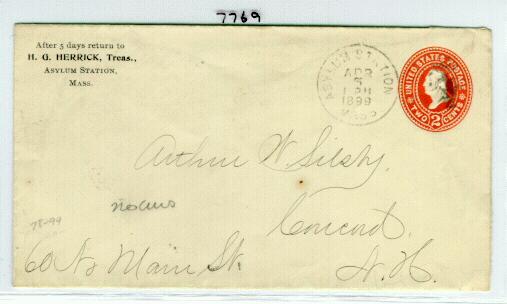 7769
After 5 days return to
H. G. HERRICK, Treas.,
ASYLUM STATION,
MASS.
ASYLUM STATION
APR
5
1 PM
1899
MASS
UNITED STATES POSTAGE
TWO 2 CENTS
Arthur W. Silsby.
Concord.
60 No Main St.
N. H.
78-99